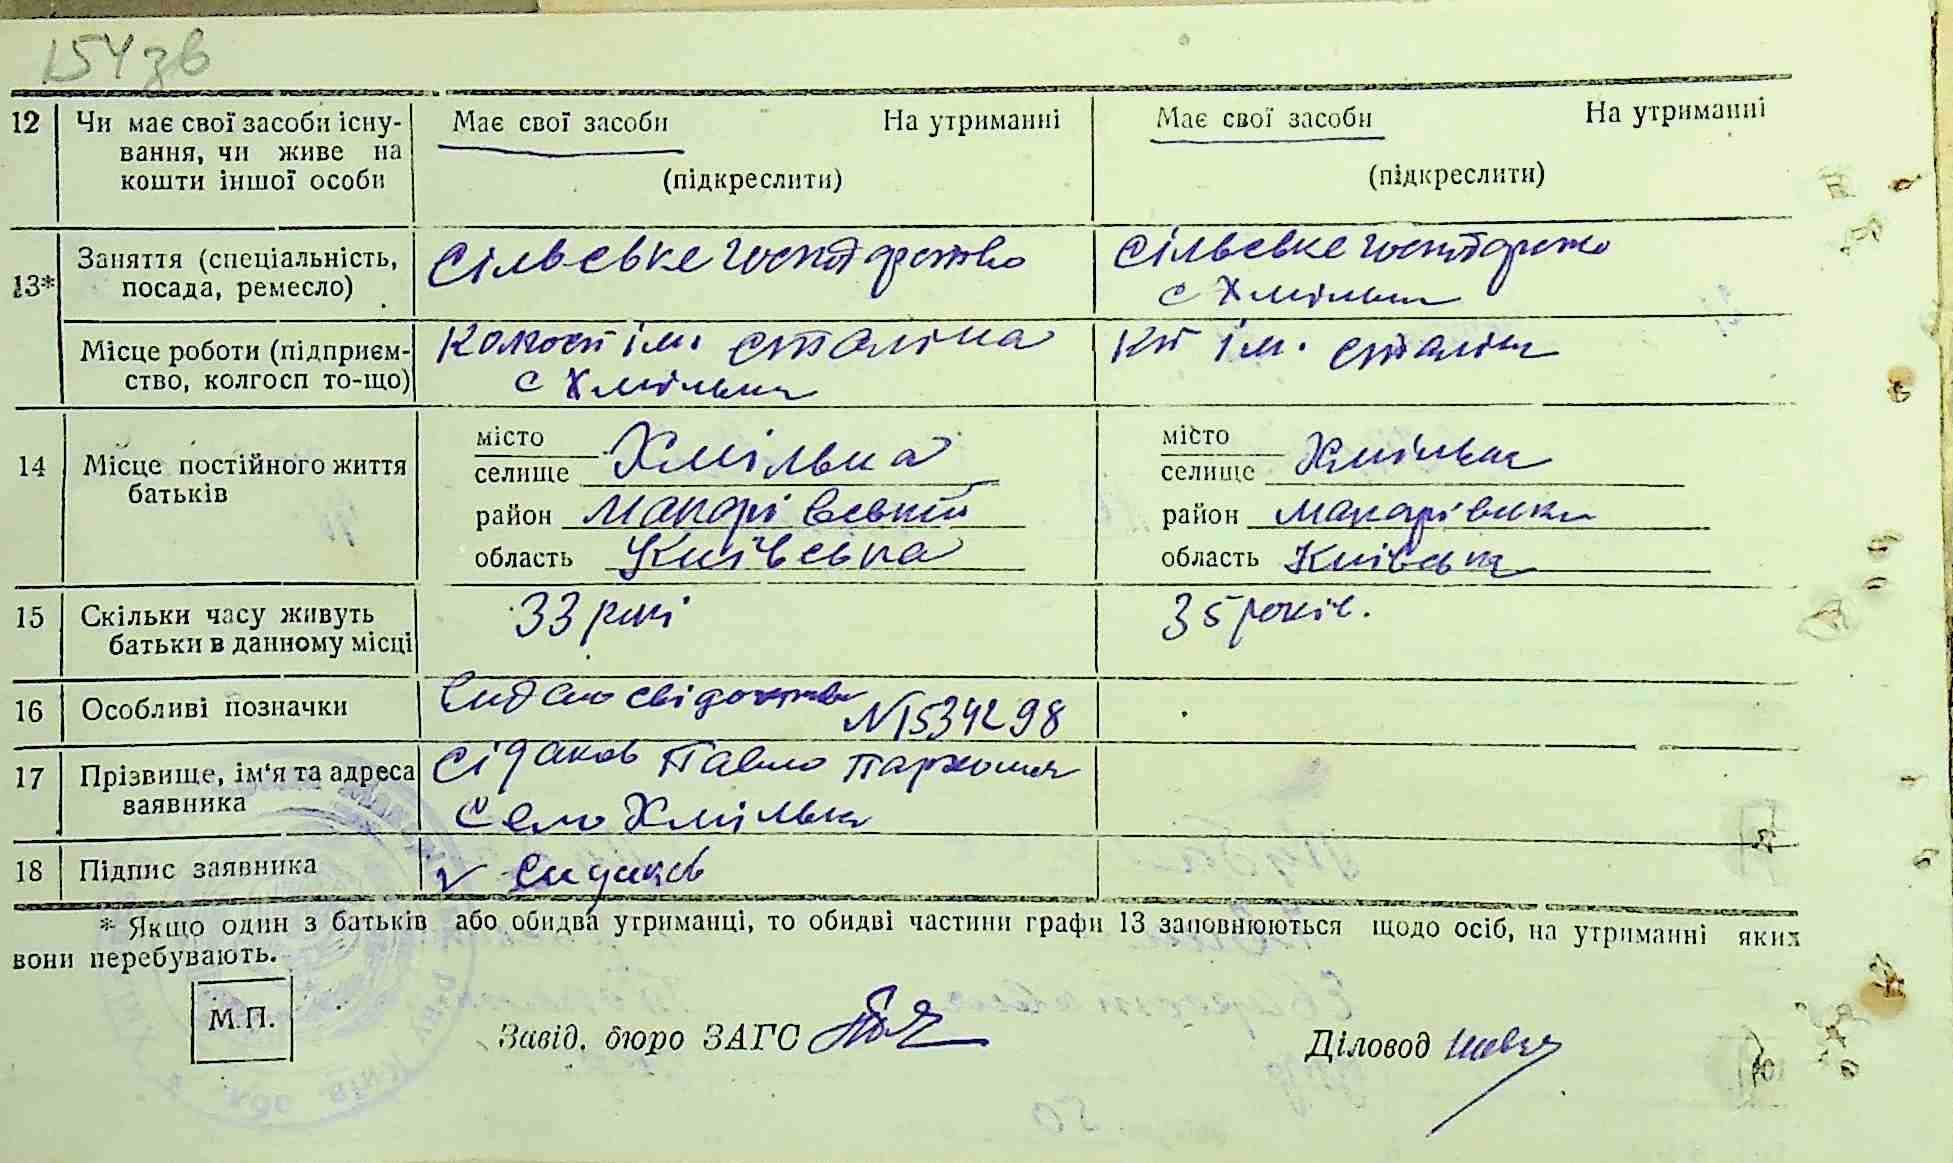 154 зв
12 Чи має свої засоби існу-
вання, чи живе на
кошти іншої особи
Має свої засоби На утриманні
(підкреслити)
Має свої засоби На утриманні
(підкреслити)
13* Заняття (спеціальність,
посада, ремесло)
Сільське господарство
Сільське господарство
с Хмільна
Місце роботи (підприєм-
ство, колгосп то-що)
Колгосп ім. Сталіна
с Хмільна
кг ім. Сталіна
14 Місце постійного життя
батьків
місто
селище Хмільна
район Макарівський
область Київська
місто
селище Хмільна
район Макарівський
область Київська
15 Скільки часу живуть
батьки в данному місці
33 роки
35 років.
16 Особливі позначки
Видано свідоцтво
№1534298
17 Прізвище, ім'я та адреса
заявника
Сідаков Павло
Село Хмільна
18 Підпис заявника
Сидаков
* Якщо один з батьків або обидва утриманці, то обидві частини графи 13 заповнюються щодо осіб, на утриманні яких
вони перебувають.
М.П.
Завід. бюро ЗАГС
Діловод